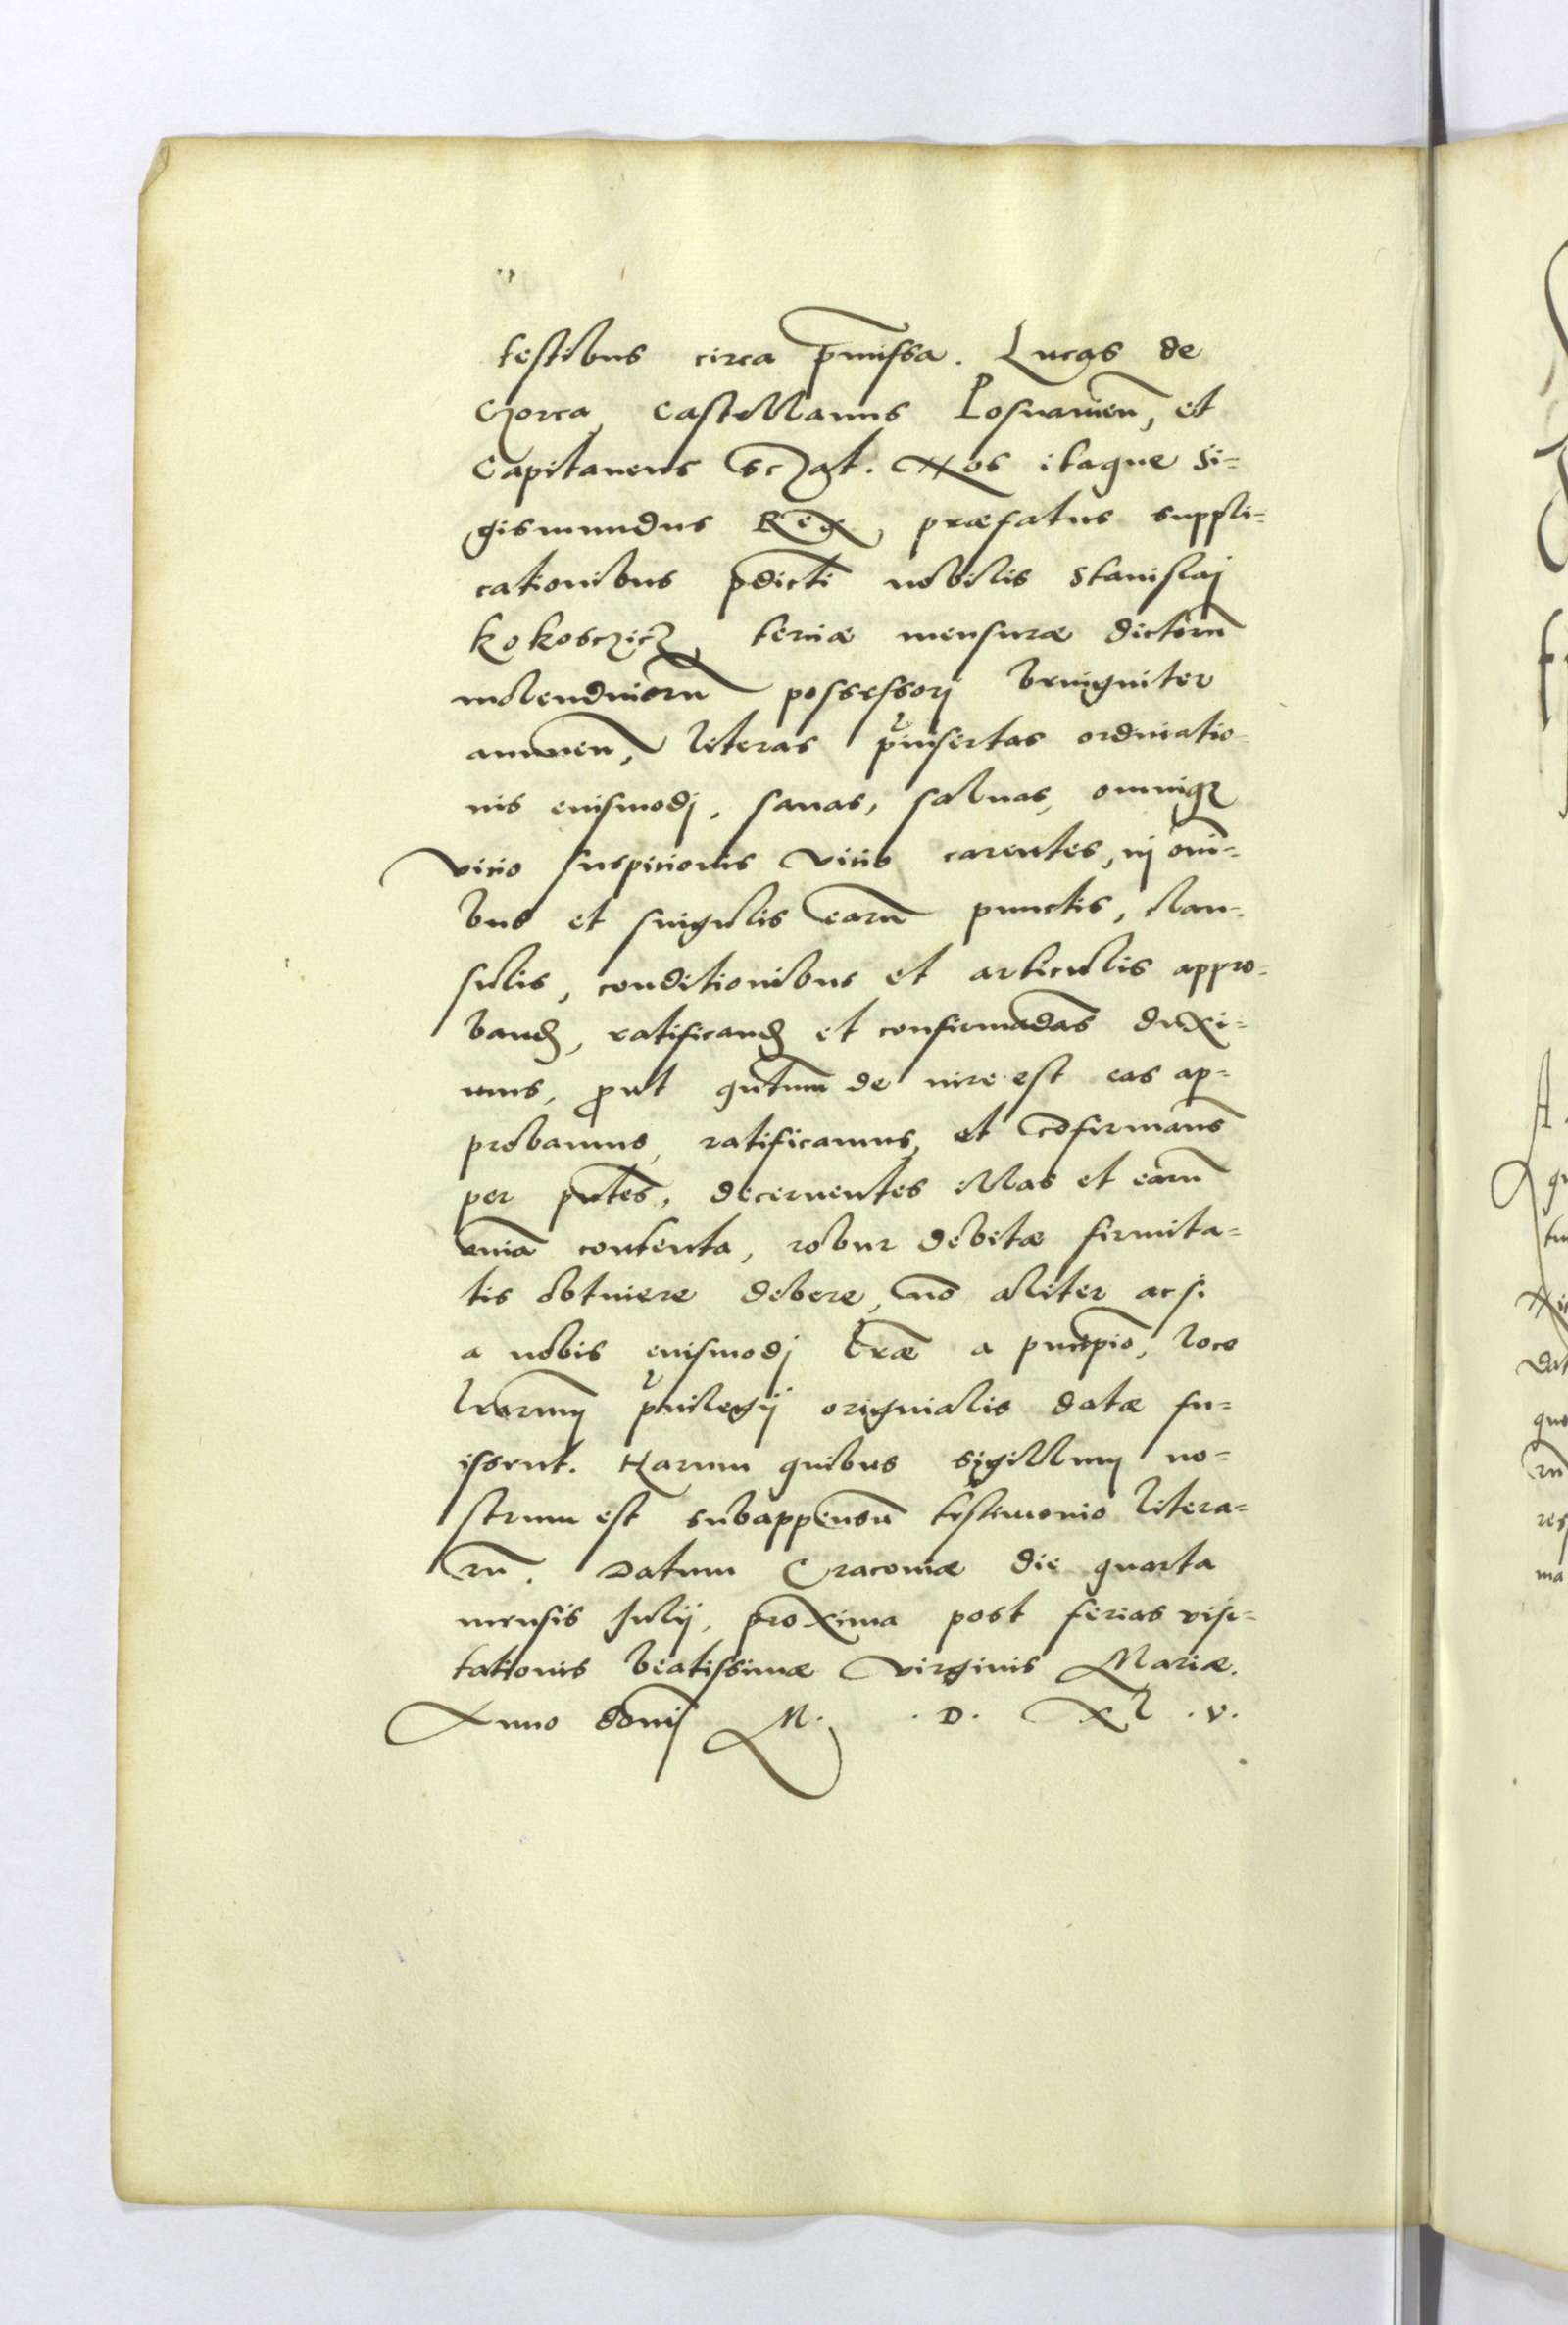 testibus circa p̄missa. Lucas de
Gorca, Castellanus Posnanien̄, et
Capitaneus etc̄at. Nos itaque Si=
gismundus Rex, præfatus suppli=
cationibus p̄dicti nobilis Stanislaj
Kokosczicz, terciæ mensuræ dictorū
molendinorū possessorj benigniter
annuen̄, literas p̄insertas ordinatio-
nis euismodj, sanas, saluas, omniqꝫ
vicio suspicionis vicio carentes, in om̄i=
bus et singulis earū punctis, clau-
sulis, conditionibus et articulis appro=
band, ratificand et confirmādas duxi=
mus, ꝓut qn̄tum de iure est eas ap=
probamus, ratificamus, et cōfirmam̄s
per pn̄tes, decernentes illas et earū
om̄ia contenta, robur debitæ firmita=
tis obtinere debere, nō aliter ac si
a nobis euismodj lr̄æ a pn̄cipio, loco
lr̄arum priuilegij originalis datæ fu=
issent. Harum quibus sigillum no=
strum est subappensū testimonio litera=
rū. Datum Cracouiæ die quarta
mensis Julij, proxima post ferias visi=
tationis beatissimæ virginis Mariæ.
Anno dom̄i M. . D. Xl . v.